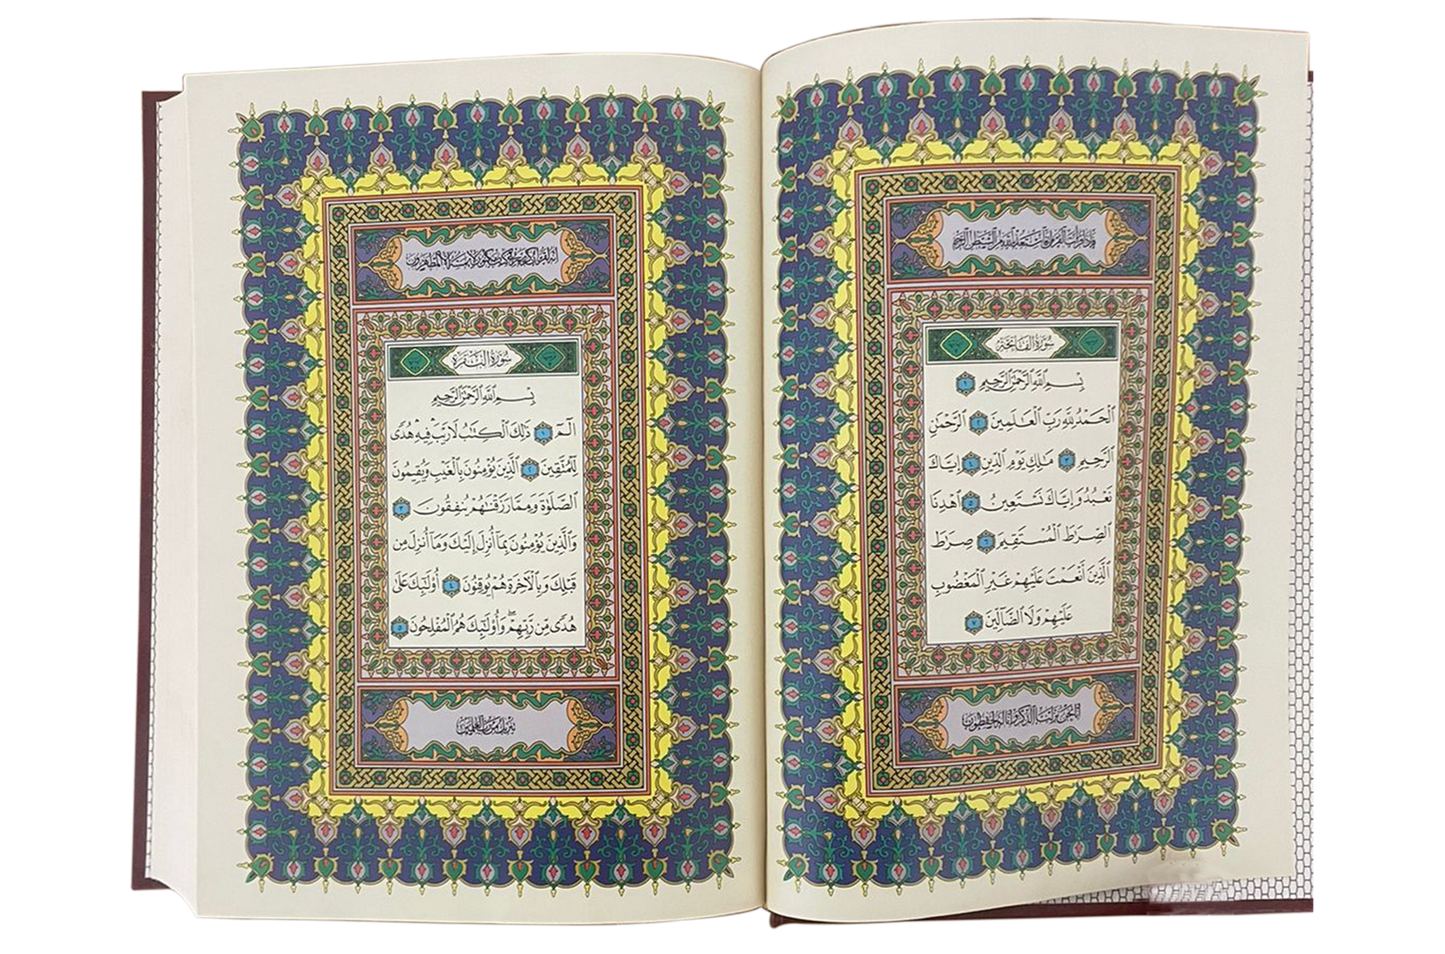 فَإِذَا قَرَأْتَ ٱلْقُرْءَانَ فَٱسْتَعِذْ بِٱللَّهِ مِنَ ٱلشَّيْطَٰنِ ٱلرَّجِيمِ
سُورَةُ الفَاتِحَةِ
بِسْمِ ٱللَّهِ ٱلرَّحْمَٰنِ ٱلرَّحِيمِ ١
ٱلْحَمْدُ لِلَّهِ رَبِّ ٱلْعَٰلَمِينَ ٢ ٱلرَّحْمَٰنِ
ٱلرَّحِيمِ ٣ مَٰلِكِ يَوْمِ ٱلدِّينِ ٤ إِيَّاكَ
نَعْبُدُ وَإِيَّاكَ نَسْتَعِينُ ٥ ٱهْدِنَا
ٱلصِّرَٰطَ ٱلْمُسْتَقِيمَ ٦ صِرَٰطَ
ٱلَّذِينَ أَنْعَمْتَ عَلَيْهِمْ غَيْرِ ٱلْمَغْضُوبِ
عَلَيْهِمْ وَلَا ٱلضَّآلِّينَ ٧
إِنَّا نَحْنُ نَزَّلْنَا ٱلذِّكْرَ وَإِنَّا لَهُۥ لَحَٰفِظُونَ
إِنَّهُۥ لَقُرْءَانٌ كَرِيمٌ فِى كِتَٰبٍ مَّكْنُونٍ لَّا يَمَسُّهُۥٓ إِلَّا ٱلْمُطَهَّرُونَ
سُورَةُ البَقَرَةِ
بِسْمِ ٱللَّهِ ٱلرَّحْمَٰنِ ٱلرَّحِيمِ
الٓمٓ ١ ذَٰلِكَ ٱلْكِتَٰبُ لَا رَيْبَ فِيهِ هُدًى
لِّلْمُتَّقِينَ ٢ ٱلَّذِينَ يُؤْمِنُونَ بِٱلْغَيْبِ وَيُقِيمُونَ
ٱلصَّلَوٰةَ وَمِمَّا رَزَقْنَٰهُمْ يُنفِقُونَ ٣
وَٱلَّذِينَ يُؤْمِنُونَ بِمَآ أُنزِلَ إِلَيْكَ وَمَآ أُنزِلَ مِن
قَبْلِكَ وَبِٱلْءَاخِرَةِ هُمْ يُوقِنُونَ ٤ أُو۟لَٰٓئِكَ عَلَىٰ
هُدًى مِّن رَّبِّهِمْ ۖ وَأُو۟لَٰٓئِكَ هُمُ ٱلْمُفْلِحُونَ ٥
تَنزِيلٌ مِّن رَّبِّ ٱلْعَٰلَمِينَ